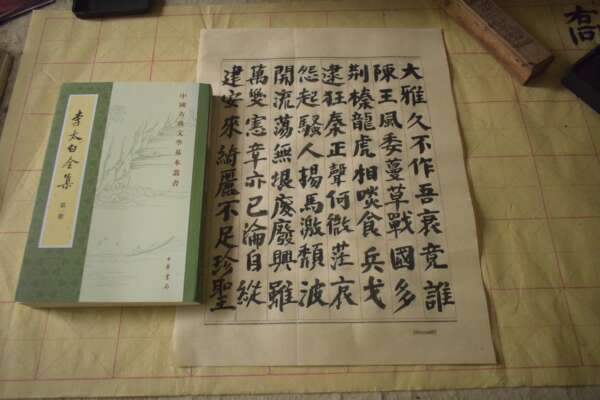 大雅久不作吾衰竟誰
陳王風委蔓草戰國多
荆榛龍虎相啖食兵戈
逮狂秦正聲何微茫哀
怨起騷人揚馬激頹波
開流蕩無垠廢廢興雖
萬變憲章亦已淪自從
建安來綺麗不足珍聖
中國古典文學基本叢書
李太白全集
中華書局